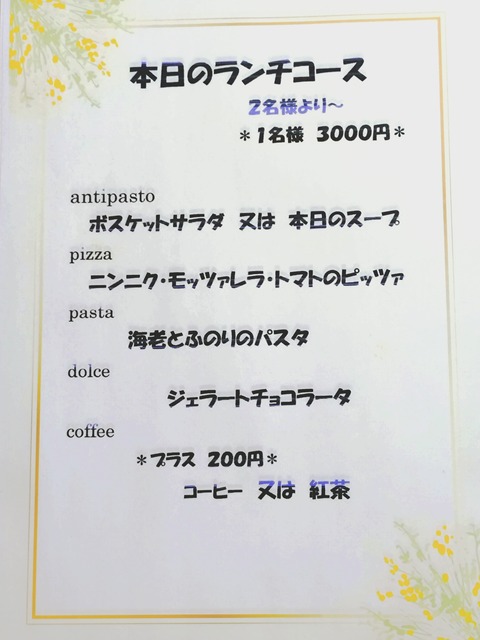 本日のランチコース
2名様より～
＊1名様 3000円＊
antipasto
ボスケットサラダ 又は 本日のスープ
pizza
ニンニク・モッツァレラ・トマトのピッツァ
pasta
海老とふのりのパスタ
dolce
ジェラートチョコラータ
coffee
＊プラス 200円＊
コーヒー 又は 紅茶